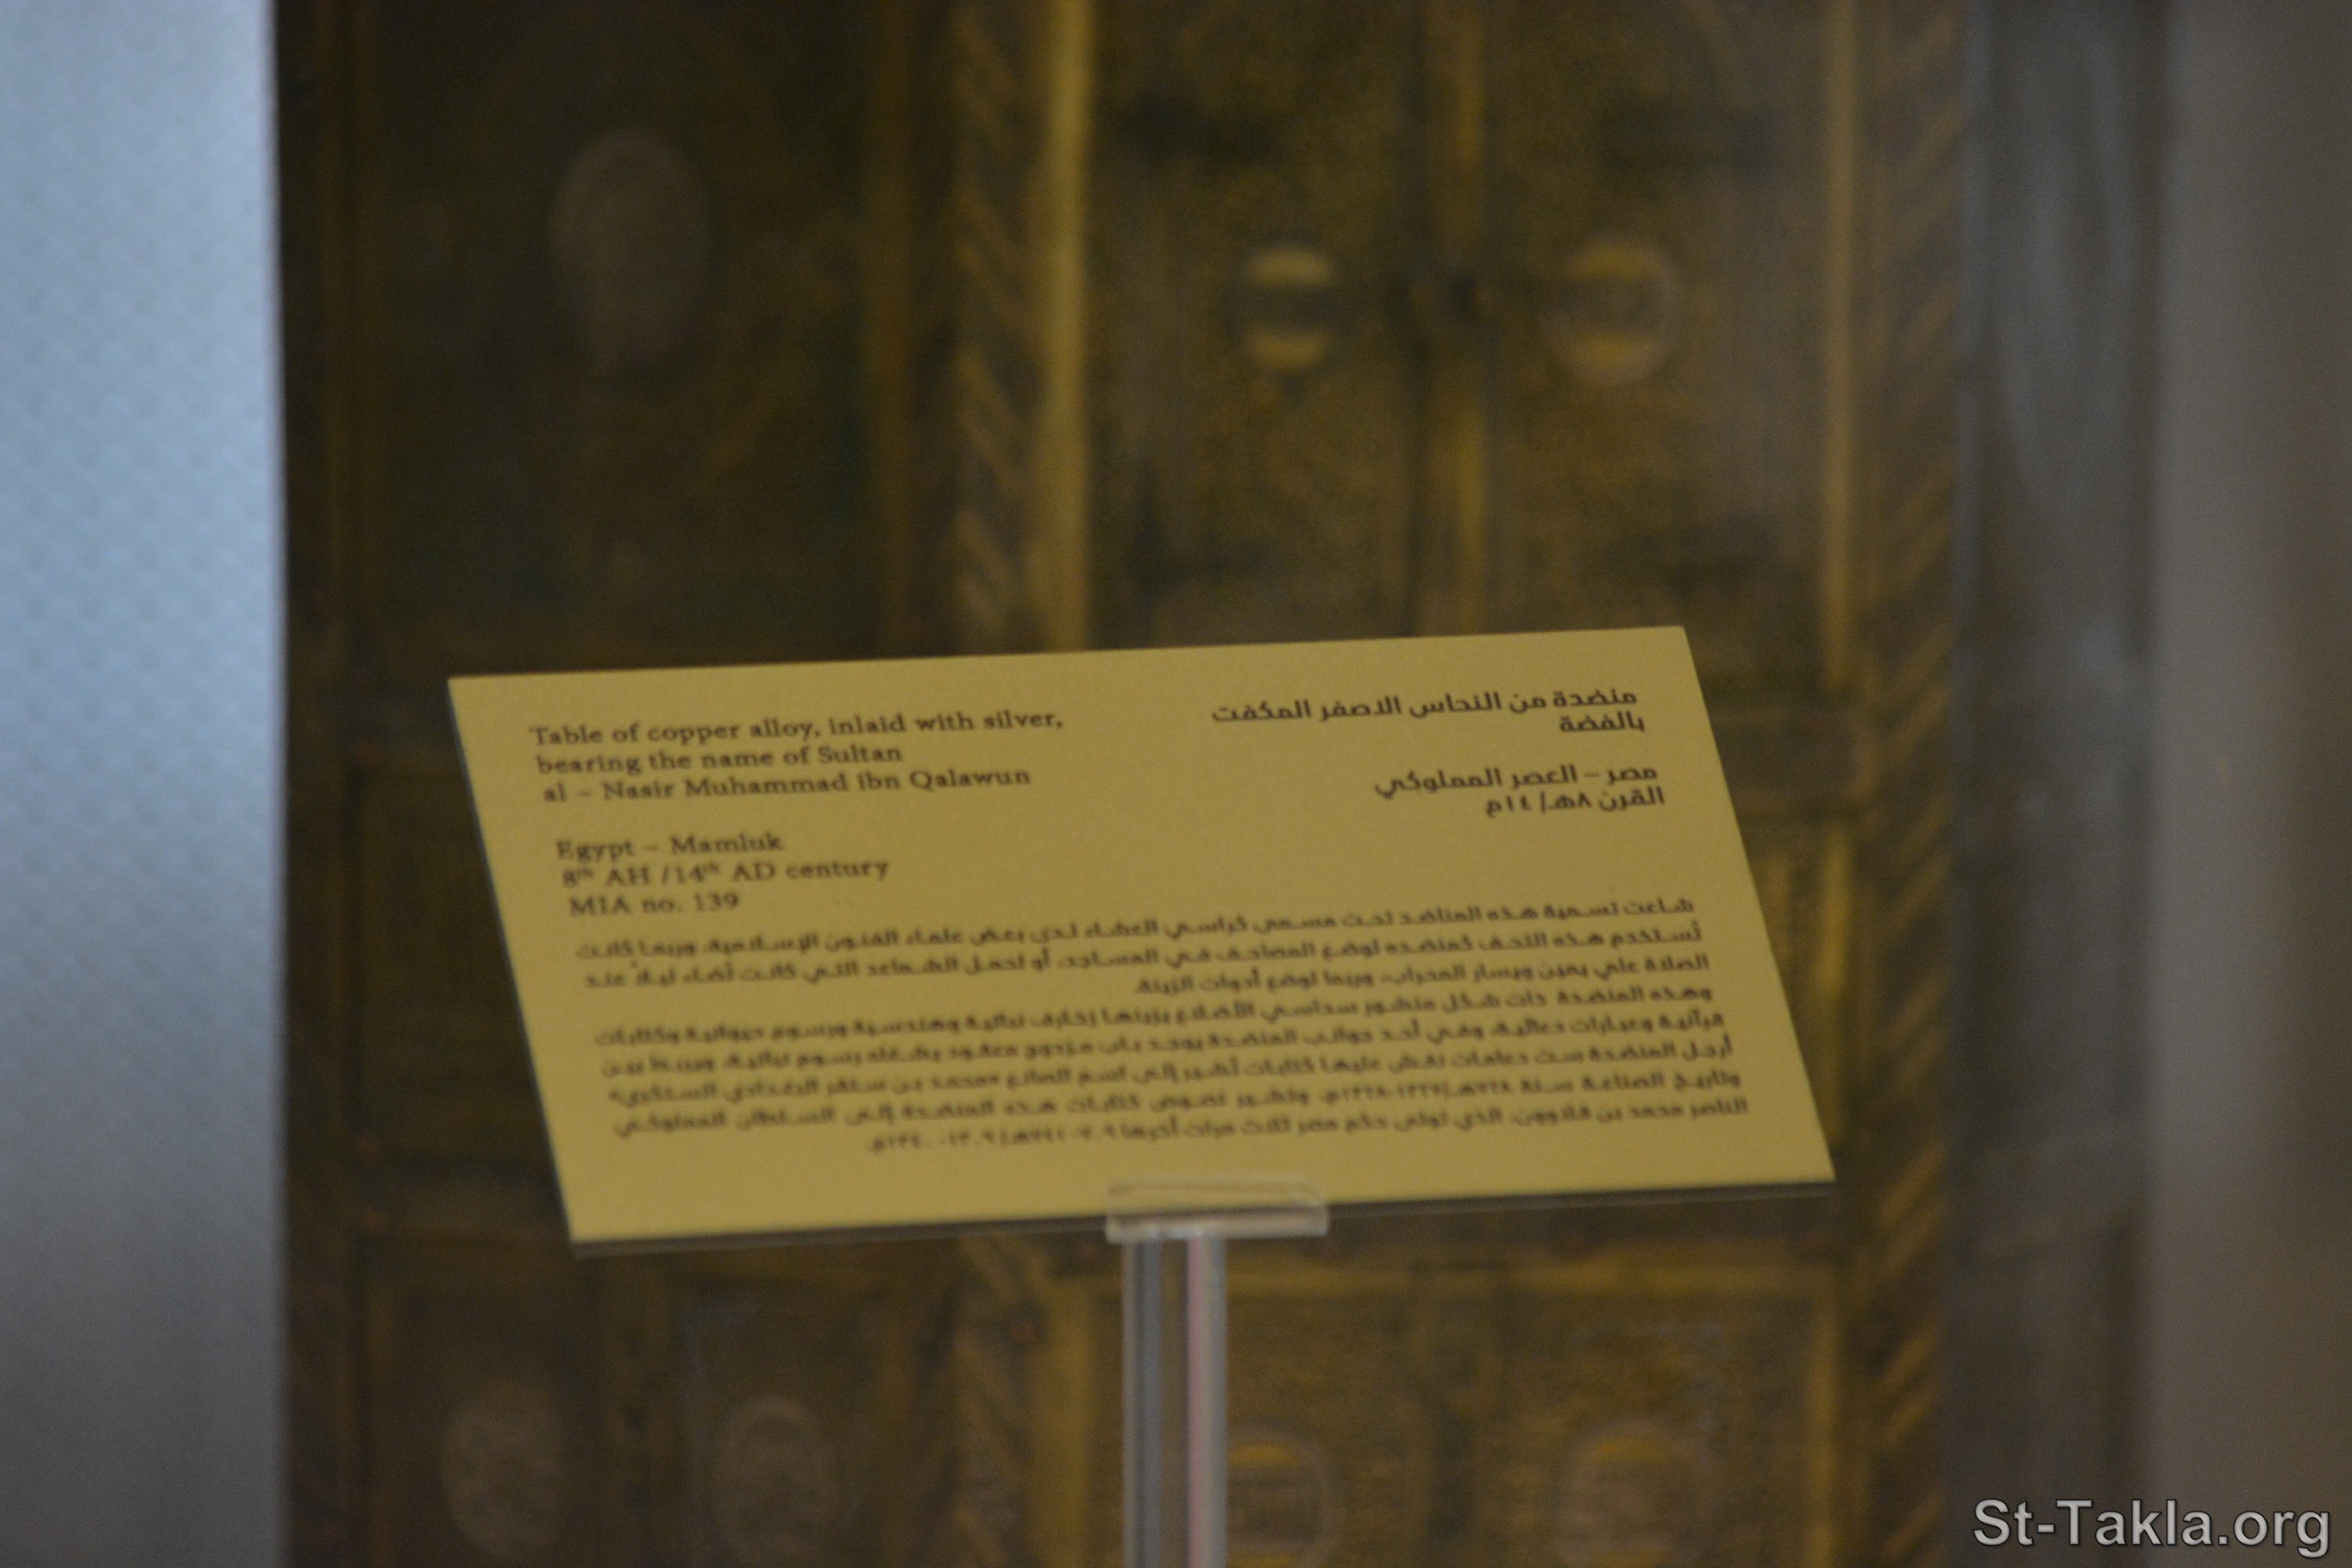 Table of copper alloy, inlaid with silver,
bearing the name of Sultan
al – Nasir Muhammad ibn Qalawun
Egypt – Mamluk
8th AH /14th AD century
MIA no. 139
منضدة من النحاس الاصفر المكفت
بالفضة
مصر – العصر المملوكي
القرن ٨هـ/ ١٤م
شاعت تسمية هذه المناضد تحت مسمى كراسي العشاء لدى بعض علماء الفنون الإسلامية، وربما كانت
تُستخدم هذه التحف كمنضده لوضع المصاحف في المساجد، أو لحمل الشماعد التي كانت تُضاء ليلاً عند
الصلاة علي يمين ويسار المحراب، وربما لوضع أدوات الزينة.
وهذه المنضدة ذات شكل منشور سداسي الأضلاع يزينها زخارف نباتية وهندسية ورسوم حيوانية وكتابات
قرآنية وعبارات دعائية، وفي أحد جوانب المنضدة يوجد باب مزدوج معقود يشغله رسوم نباتية، ويربط بين
أرجل المنضدة ست دعامات نقش عليها كتابات تُشير إلى اسم الصانع «محمد بن سنقر البغدادي السنكري»
وتاريخ الصناعة سنة ٧٢٨هـ/١٣٢٧-١٣٢٨م، وتشير نصوص كتابات هذه المنضدة إلى السلطان المملوكي
الناصر محمد بن قلاوون، الذي تولى حكم مصر ثلاث مرات أخرها ٧٠٩-٧٤١هـ/ ١٣٠٩- ١٣٤٠م.
St-Takla.org